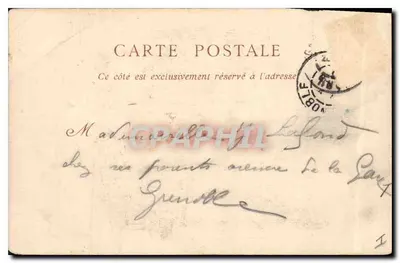 CARTE POSTALE
Ce côté est exclusivement réservé à l'adresse
OBLE
CARTAPHIL
Mademoiselle Lafond
chez ses parents avenue de la Gare
Grenoble